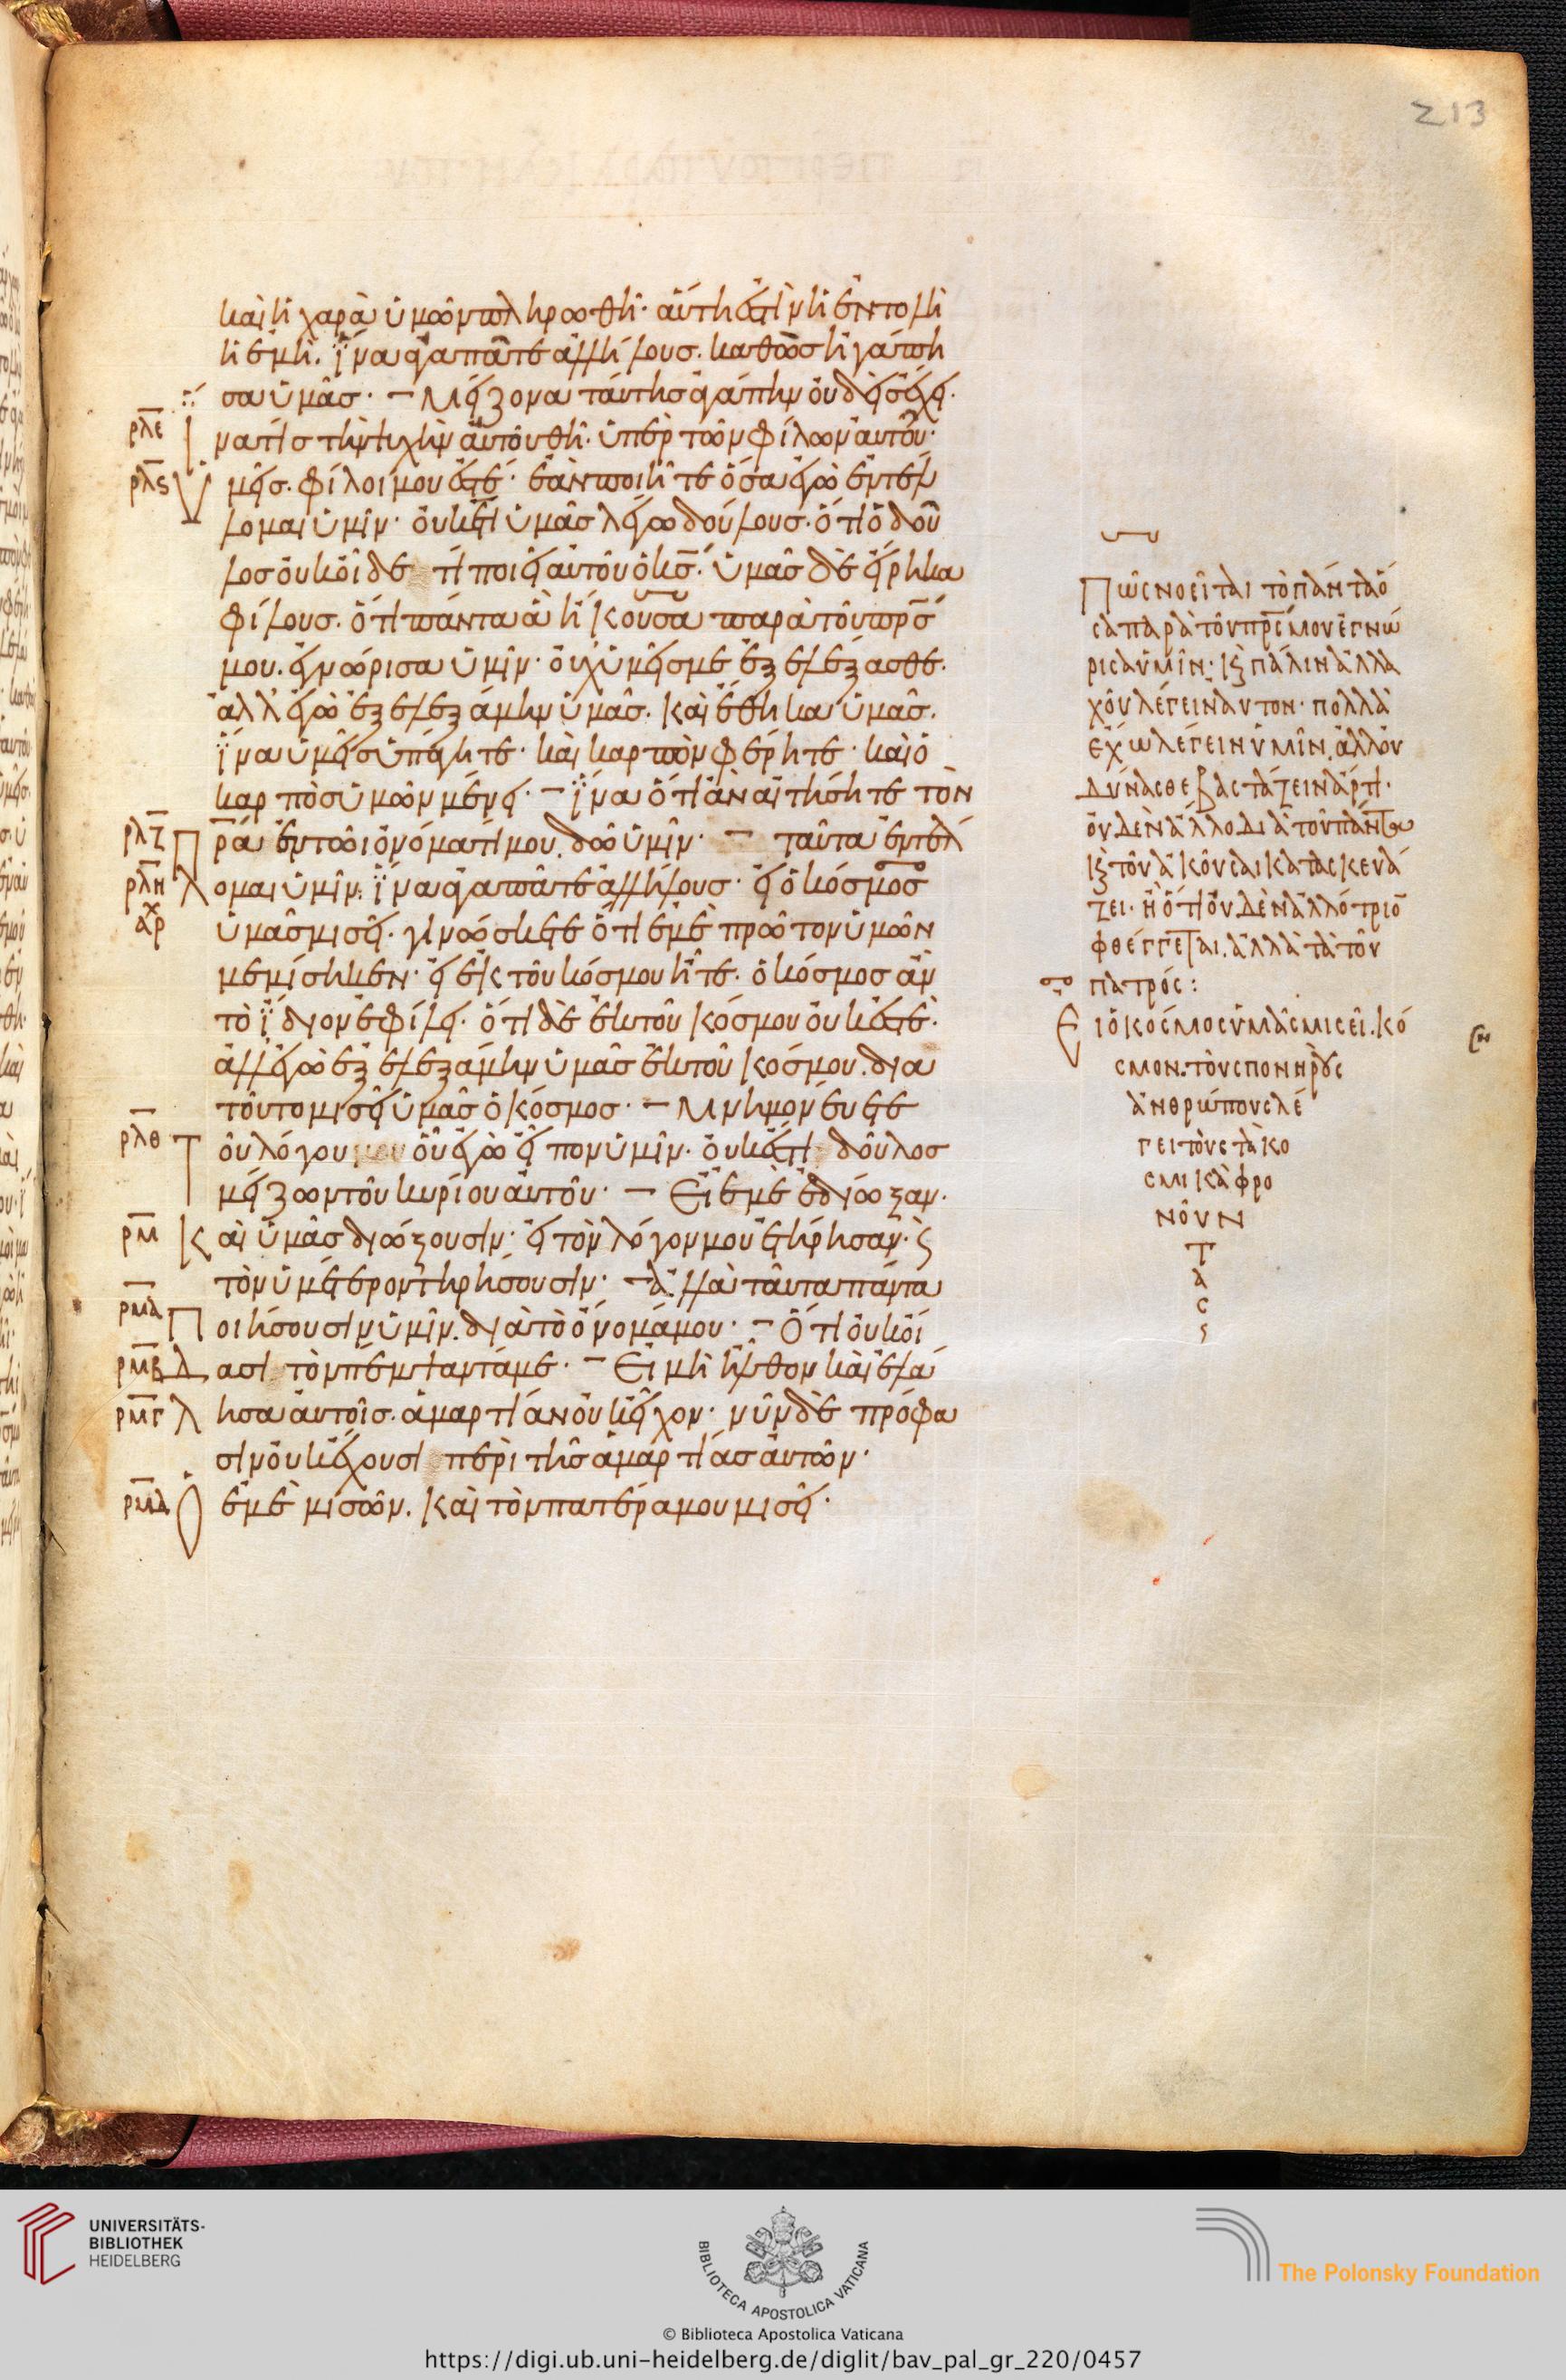 213
καὶ ἡ χαρὰ ὑμῶν πληρωθῆ· αὕτη ἐστὶν ἡ ἐντολὴ
ἡ ἐμή. ἵνα ἀγαπᾶτε ἀλλήλους. καθὼς ἠγάπη
σα ὑμᾶς· – Μείζονα ταύτης ἀγάπην οὐδεὶς ἔχει.
ρλε ἵνα τίς τὴν ψυχὴν αὐτοῦ θῆ· ὑπὲρ τῶν φίλων αὐτοῦ·
ρλς Ὑμεῖς φίλοι μου ἐστέ· ἐὰν ποιῆτε ὅσα ἐγὼ ἐντέλ
λομαι ὑμῖν· οὐκέτι ὑμᾶς λέγω δούλους. ὅτι ὁ δοῦ
λος οὐκ οἶδε τί ποιεῖ αὐτοῦ ὁ κς. ὑμᾶς δὲ εἴρηκα
φίλους. ὅτι πάντα ἃ ἤκουσα παρὰ τοῦ πρς
μου. ἐγνώρισα ὑμῖν· οὐχ ὑμεῖς με ἐξελέξασθε.
ἀλλ' ἐγὼ ἐξελεξάμην ὑμᾶς. καὶ ἔθηκα ὑμᾶς.
ἵνα ὑμεῖς ὑπάγητε· καὶ καρπὸν φέρητε· καὶ ὁ
καρπὸς ὑμῶν μένει· – ἵνα ὅτι ἂν αἰτήσητε τὸν
ρλζ Πρα ἐν τῶι ὀνόματί μου. δῶ ὑμῖν· – ταῦτα ἐντέλ
ρλη λομαι ὑμῖν. ἵνα ἀγαπᾶτε ἀλλήλους· εἰ ὁ κόσμος
ἀρχ ὑμᾶς μισεῖ. γινώσκετε ὅτι ἐμὲ πρῶτον ὑμῶν
μεμίσηκεν· εἰ ἐκ τοῦ κόσμου ἦτε. ὁ κόσμος ἂν
τὸ ἴδιον ἐφίλει· ὅτι δὲ ἐκ τοῦ κόσμου οὐκ ἐστὲ.
ἀλλ ἐγὼ ἐξελεξάμην ὑμᾶς ἐκ τοῦ κόσμου. δια
τοῦτο μισεῖ ὑμᾶς ὁ κόσμος· – Μνημονεύετε
ρλθ Τοῦ λόγου οὗ ἐγὼ εἶπον ὑμῖν· οὐκ ἔστι δοῦλος
μείζων τοῦ κυρίου αὐτοῦ· – Εἰ ἐμὲ ἐδίωξαν.
ρμ Καὶ ὑμᾶς διώξουσιν· εἰ τὸν λόγον μου ἐτήρησαν· ϛ
τὸν ὑμέτερον τηρήσουσιν· – ἀλλὰ ταῦτα πάντα
ρμα Ποιήσουσιν ὑμῖν. διὰ τὸ ὄνομά μου· – Ὅτι οὐκ οἴ
ρμβ Δασι τὸν πέμψαντά με· – Εἰ μὴ ἦλθον καὶ ἐλά
ρμγ Λησα αὐτοῖς. ἁμαρτίαν οὐκ εἶχον· νῦν δὲ πρόφα
σιν οὐκ ἔχουσι περὶ τῆς ἁμαρτίας αὐτῶν·
ρμδ Ὁ ἐμὲ μισῶν. καὶ τὸν πατέρα μου μισεῖ·
Πῶς νοεῖται τὸ πάντα ὅ
σα παρὰ τοῦ πρς μου ἐγνώ
ρισα ὑμῖν· κ πάλιν ἀλλα
χοῦ λέγειν αυτον· πολλὰ
ἔχω λέγειν ὑμῖν. ἀλλ οὐ
δύνασθε βαστάζειν ἄρτι·
οὐδὲν ἄλλο διὰ τοῦ πάντα
κ τοῦ ἀκοῦσαι κατασκευά
ζει· ἢ ὅτι οὐδὲν ἀλλότριο
φθέγγεται. ἀλλὰ τὰ τοῦ
πατρός:
Εἰ ὁ κόσμος ὑμᾶς μισεῖ. κό
σμον. τοὺς πονηροὺς
ἀνθρώπους λέ
γει τοὺς τὰ κο
σμικὰ φρο
νοῦν
τ
α
ς
UNIVERSITÄTS-
BIBLIOTHEK
HEIDELBERG
BIBLIOTECA APOSTOLICA VATICANA
The Polonsky Foundation
© Biblioteca Apostolica Vaticana
https://digi.ub.uni-heidelberg.de/diglit/bav_pal_gr_220/0457